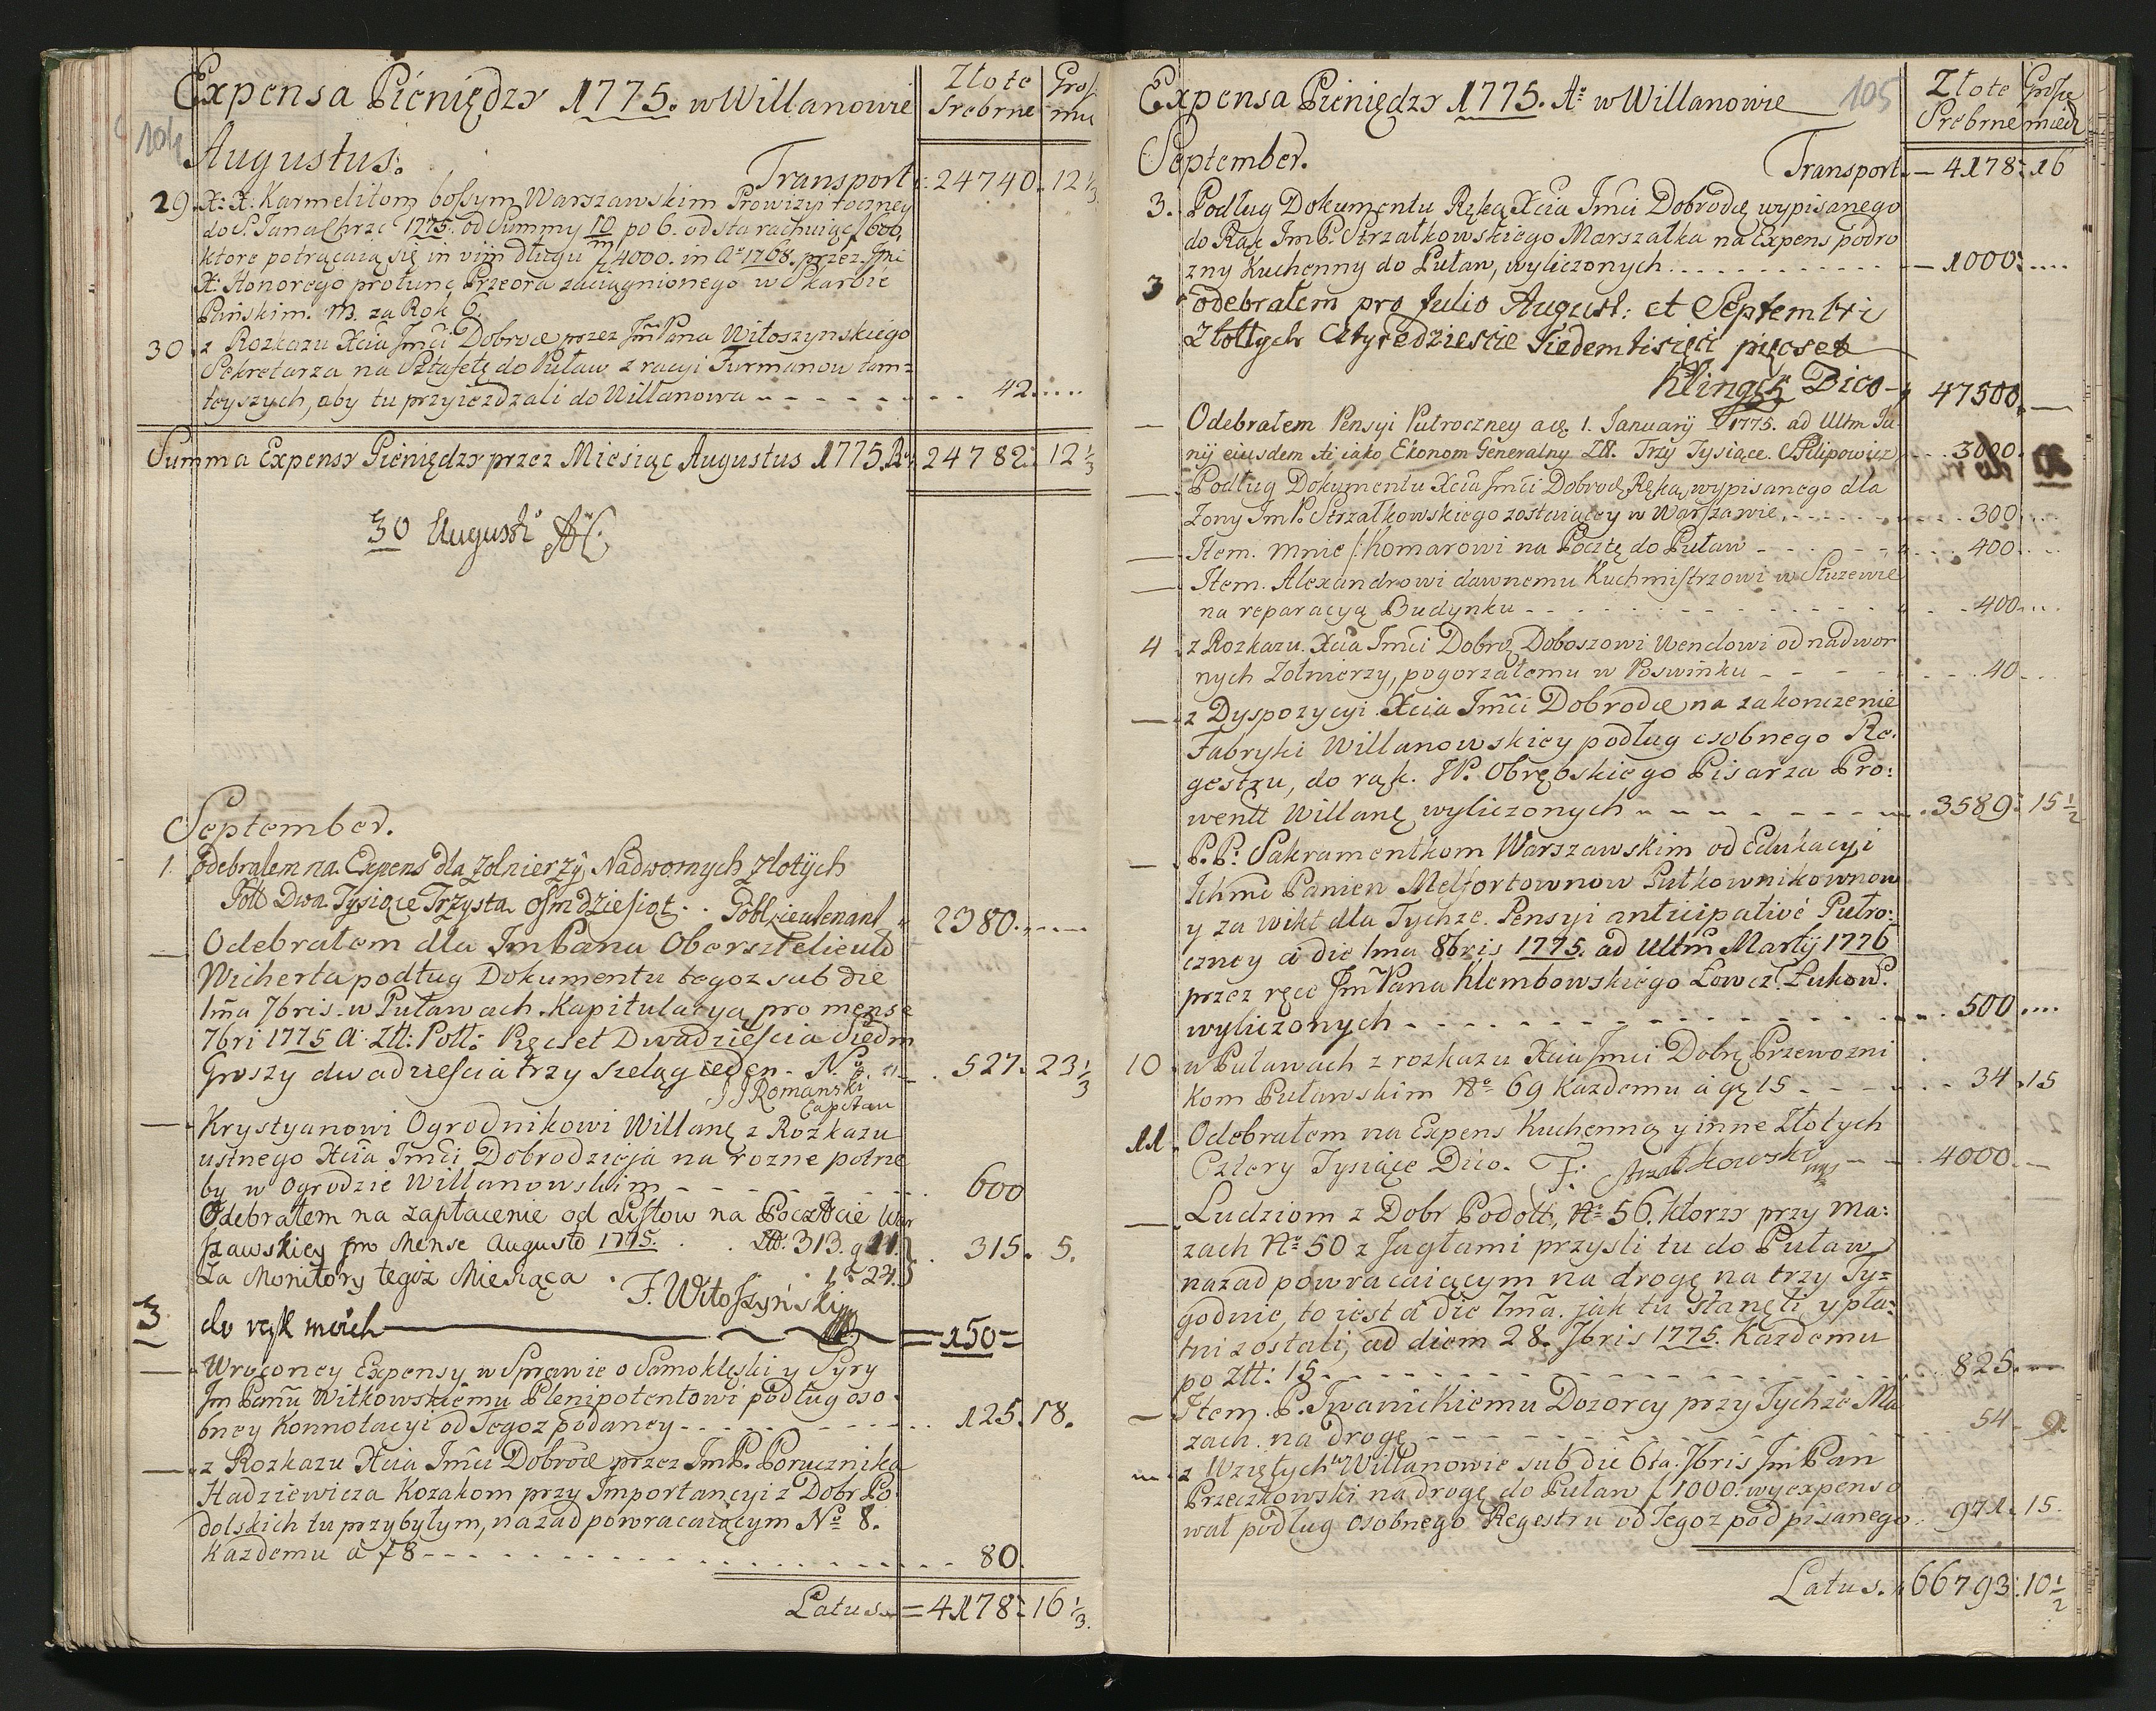 Expensa Pieniędzy 1775. w Willanowie
Złote Srebrne
Gros. mie
104
Augustus. Transport 24740. 12 1/3
29. X: X: Karmelitom bossym Warszawskim Prowizyi roczney
do S. Jana Chrzc 1775. od Summy 10/m po 6. od sta rachuiąc f 600,
ktore potrącaią się in vim długu f 4000. in Aº 1768. przez Jmć
X: Honorego pro tunc Przeora zaciągnionego w Skarbie
Pińskim. NB. za Rok 6.
30. z Rozkazu Xcia Jmći Dobrod przez JmPana Witoszynskiego
Sekretarza na Sztafetę do Puław z racyi Furmanow tam=
teyszych, aby tu przyieżdzali do Willanowa - - - 42. ....
Summa Expensy Pieniędzy przez Miesiąc Augustus 1775. Aº 24782: 12 1/3
30 Augusti AC
September.
1. Odebrałem na Expens dla Zołnierzÿ Nadwornych Złotÿch
Poll Dwa Tysiące Trzysta Osmdziesiąt . . Lieutenant 2380. ----
— Odebrałem dla Jm Pana Obersztelieutt
Wicherta podług Dokumentu tegoz sub die
1ma 7bris w Puławach. Kapitulacyą pro mense
7bri 1775 A. Ztt: Poll: Pięcset Dwadzieścia Siedm
Groszy dwadzieścia trzy szeląg ieden - Nº 2. 527. 23 1/3
J J Romanski
Capitan
— Krystyanowi Ogrodnikowi Willanę z Rozkazu
ustnego Xcia Jmći Dobrodzieja na rozne potrze
by w Ogrodzie Willanowskim - - - 600
Odebrałem na zapłacenie od Listow na Poczttcie War
szawskiey pro Mense Augusto 1775. . . Ztt. 313. g 11. } 315. 5.
Za Monitory tegoz Miesiąca . 1. 24.
F. Witoszyński
3 do rąk moich = 150 =
— Wroconey Expensy w Sprawie o Samoklęski y Syry
Jm Panu Witkowskiemu Plenipotentowi podług oso:
bney Konnotacyi od Tegoz podaney - - - 125. 18.
— z Rozkazu Xcia Jmći Dobrod przez JmP. Porucznika
Hadziewicza Kozakom przy Importancyi z Dobr Po:
dolskich tu przybyłym, nazad powracaiącym Nº 8.
Kazdemu à f 8 - - - 80.
Latus = 4178: 16 1/3.
Expensa Pieniędzy 1775. Aº w Willanowie 105
Złote Srebrne
Grosze miedz
September. Transport. — 4178: 16
3. Podług Dokumentu Ręką Xcia Jmći Dobrodę wypisanego
do Rąk JmP. Strzałkowskiego Marszałka na Expens podro
zny Kuchenny do Puław, wyliczonych. . . . — 1000: ....
3 odebrałem pro Julio August: et Septembri
Złottych Cztyrdziescie Siedem tisięci pięcset
Klingk Dico — 47500. —
— Odebrałem Pensyi Pułroczney a ię 1. Januarÿ 1775. ad Ultm Ju
nÿ eiusdem Ai iako Ekonom Generalny Ztt. Trzy Tysiące. Filipowicz 3000.
— Podług Dokumentu Xcia Jmći Dobrod Ręką wypisanego dla
Zony JmP. Strzałkowskiego zostaiącey w Warszawie. - - - 300. ...
— Item. mnie /: Komarowi na Pocztę do Puław - - - 400. ...
— Item. Alexandrowi dawnemu Kuchmistrzowi w Słuzewie
na reparacyą Budynku - - - 400. ...
4 z Rozkazu. Xcia Jmći Dobrę Doboszowi Wendowi od nadwor
nych Zołnierzy, pogorzałemu w Poswinku - - - 40. ...
— z Dyspozycyi Xcia Jmći Dobrodę na zakończenie
Fabryki Willanowskiey podług osobnego Re:
gestru, do rąk. W. Obrębskiego Pisarza Pro:
wentt Willanę wyliczonych - - - 3589: 15 1/2
— P.P: Sakramentkom Warszawskim od Edukacyi
Ichmć Panien Melfortownow Pułkownikownow
y za wikt dla Tychze. Pensyi anticipativé Pułro:
czney à die 1ma 8bris 1775. ad Ultm Martÿ 1776
przez ręce Jm Pana Klembowskiego Łowcz. Łukow.
wyliczonych - - - 500. ....
10. w Puławach z rozkazu Xcia Jmci Dobrę Przewozni
kom Puławskim Nº 69 Kazdemu à gę 15 - - - 34. 15
11. Odebrałem na Expens Kuchenną y inne Złotych
Cztery Tysiące Dico. F: Strzałkowski mp - - 4000. —
— Ludziom z Dobr Podoll, Nº 56. ktorzy przy Ma:
zach Nº 50 z Jagłami przyśli tu do Puław
nazad powracaiącym na drogę na trzy Ty=
godnie, to iest à die 7ma. jak tu stanęli y pła:
tni zostali, ad diem 28. 7bris 1775. Kazdemu
po Ztt: 15 - - - 825. —
— Item. P. Iwanickiemu Dozorcy przy Tychze Ma
zach na drogę - - - 54 - 9.
— z Wziętych w Willanowie sub die 6ta. 7bris Jm Pan
Przeczkowski na drogę do Puław f 1000. wyexpenso
wał podług osobnego Regestru od Tegoz podpisanego . 971. 15.
Latus. 66793: 10 1/2